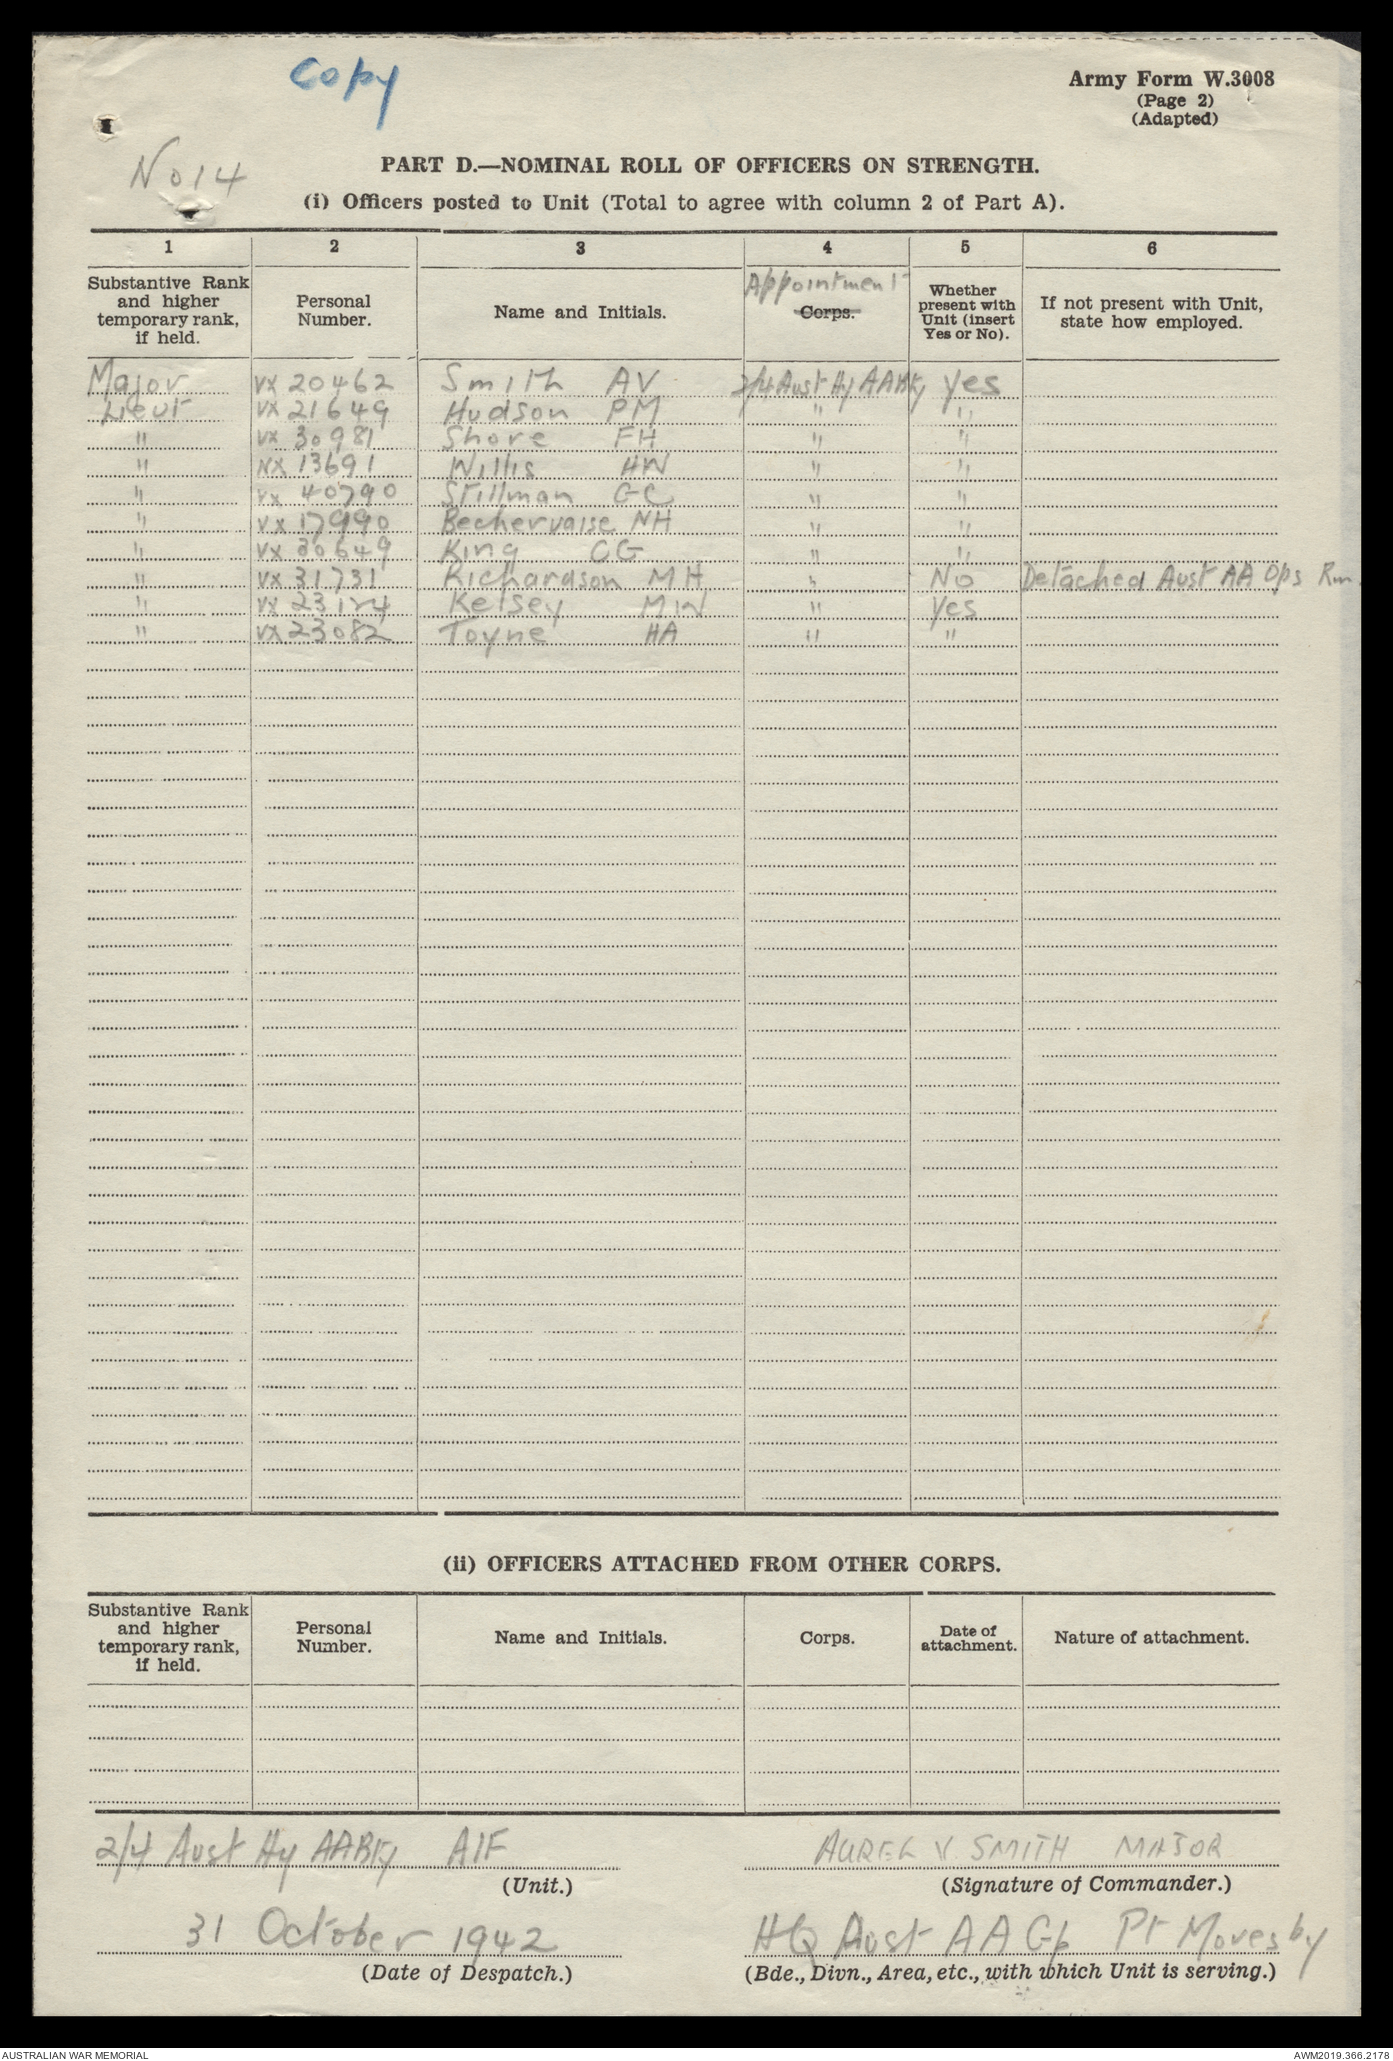 Copy
Army Form W.3008
(Page 2)
(Adapted)
No 14
PART D.—NOMINAL ROLL OF OFFICERS ON STRENGTH.
(i) Officers posted to Unit (Total to agree with column 2 of Part A).
1 2 3 4 5 6
Substantive Rank and higher temporary rank, if held. Personal Number. Name and Initials. Appointment Corps. Whether present with Unit (insert Yes or No). If not present with Unit, state how employed.
Major VX 20462 Smith AV 2/4 Aust Hy AABty yes
Lieut VX 21649 Hudson PM " "
" VX 30981 Shore FH " "
" NX 13691 Willis HW " "
" VX 40790 Stillman GC " "
" VX 17990 Bechervaise NH " "
" VX 30649 King CG " "
" VX 31731 Richardson MH " No Detached Aust AA Ops Rm.
" VX 23124 Kelsey MW " yes
" VX 23082 Toyne HA " "
(ii) OFFICERS ATTACHED FROM OTHER CORPS.
Substantive Rank and higher temporary rank, if held. Personal Number. Name and Initials. Corps. Date of attachment. Nature of attachment.
2/4 Aust Hy AABty AIF AUREL V. SMITH MAJOR
(Unit.) (Signature of Commander.)
31 October 1942 HQ Aust AA Gp Pt Moresby
(Date of Despatch.) (Bde., Divn., Area, etc., with which Unit is serving.)
AUSTRALIAN WAR MEMORIAL AWM2019.366.2178